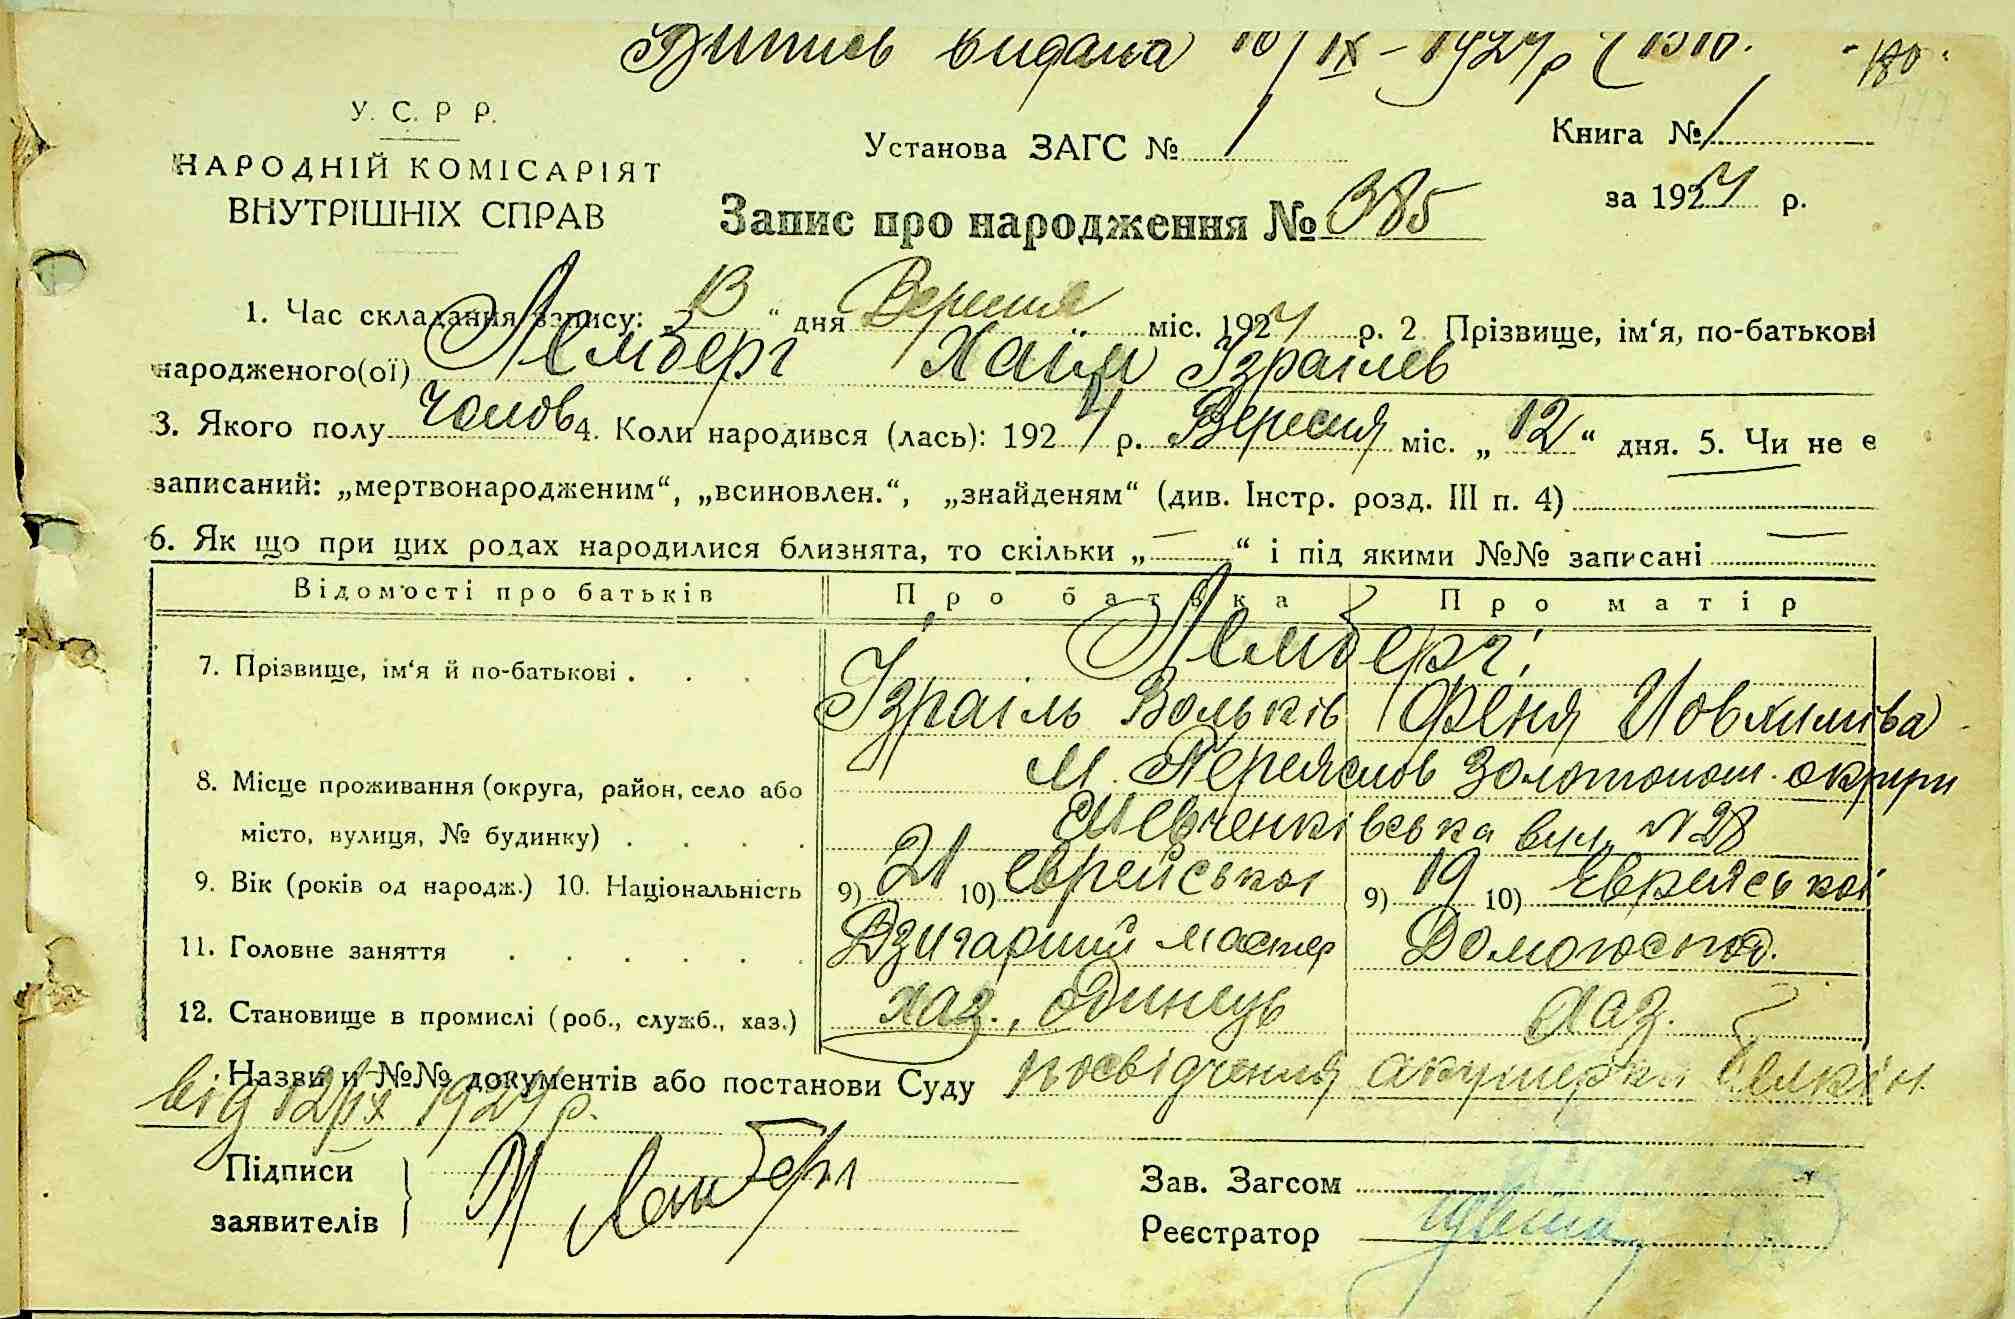 Витись видана 10/IX - 1924 р
180
177
У. С. Р Р.
НАРОДНІЙ КОМІСАРІЯТ
ВНУТРІШНІХ СПРАВ
Установа ЗАГС № 1
Книга № 1
за 1924 р.
Запис про народження № 385
1. Час складання запису: 13 " дня Вересня міс. 1924 р. 2 Прізвище, ім'я, по-батькові
народженого(ої) Лемберг Хаїм Ізраілев
3. Якого полу чолов 4. Коли народився (лась): 1924 р. Вересня міс. „ 12 “ дня. 5. Чи не є
записаний: „мертвонародженим“, „всиновлен.“, „знайденям“ (див. Інстр. розд. III п. 4)
6. Як що при цих родах народилися близнята, то скільки „ — “ і під якими №№ записані —
Відомості про батьків Про батька Про матір
Лемберг
7. Прізвище, ім'я й по-батькові . Ізраіль Вольків Феня Иовхимива
8. Місце проживання (округа, район, село або м. Переяслов Золотонош. округи
місто, вулиця, № будинку) . Шевченківська вул. № 28
9. Вік (років од народж.) 10. Національність 9) 21 10) єврейської 9) 19 10) Єврейської
11. Головне заняття Дзигарший мастер Домогоспод.
12. Становище в промислі (роб., служб., хаз.) хаз., одинець хаз.
Назви и №№ документів або постанови Суду посвідчення акушерки Белкін
від 12/ІХ 1924 р.
Підписи
заявителів Лемберг
Зав. Загсом
Реєстратор